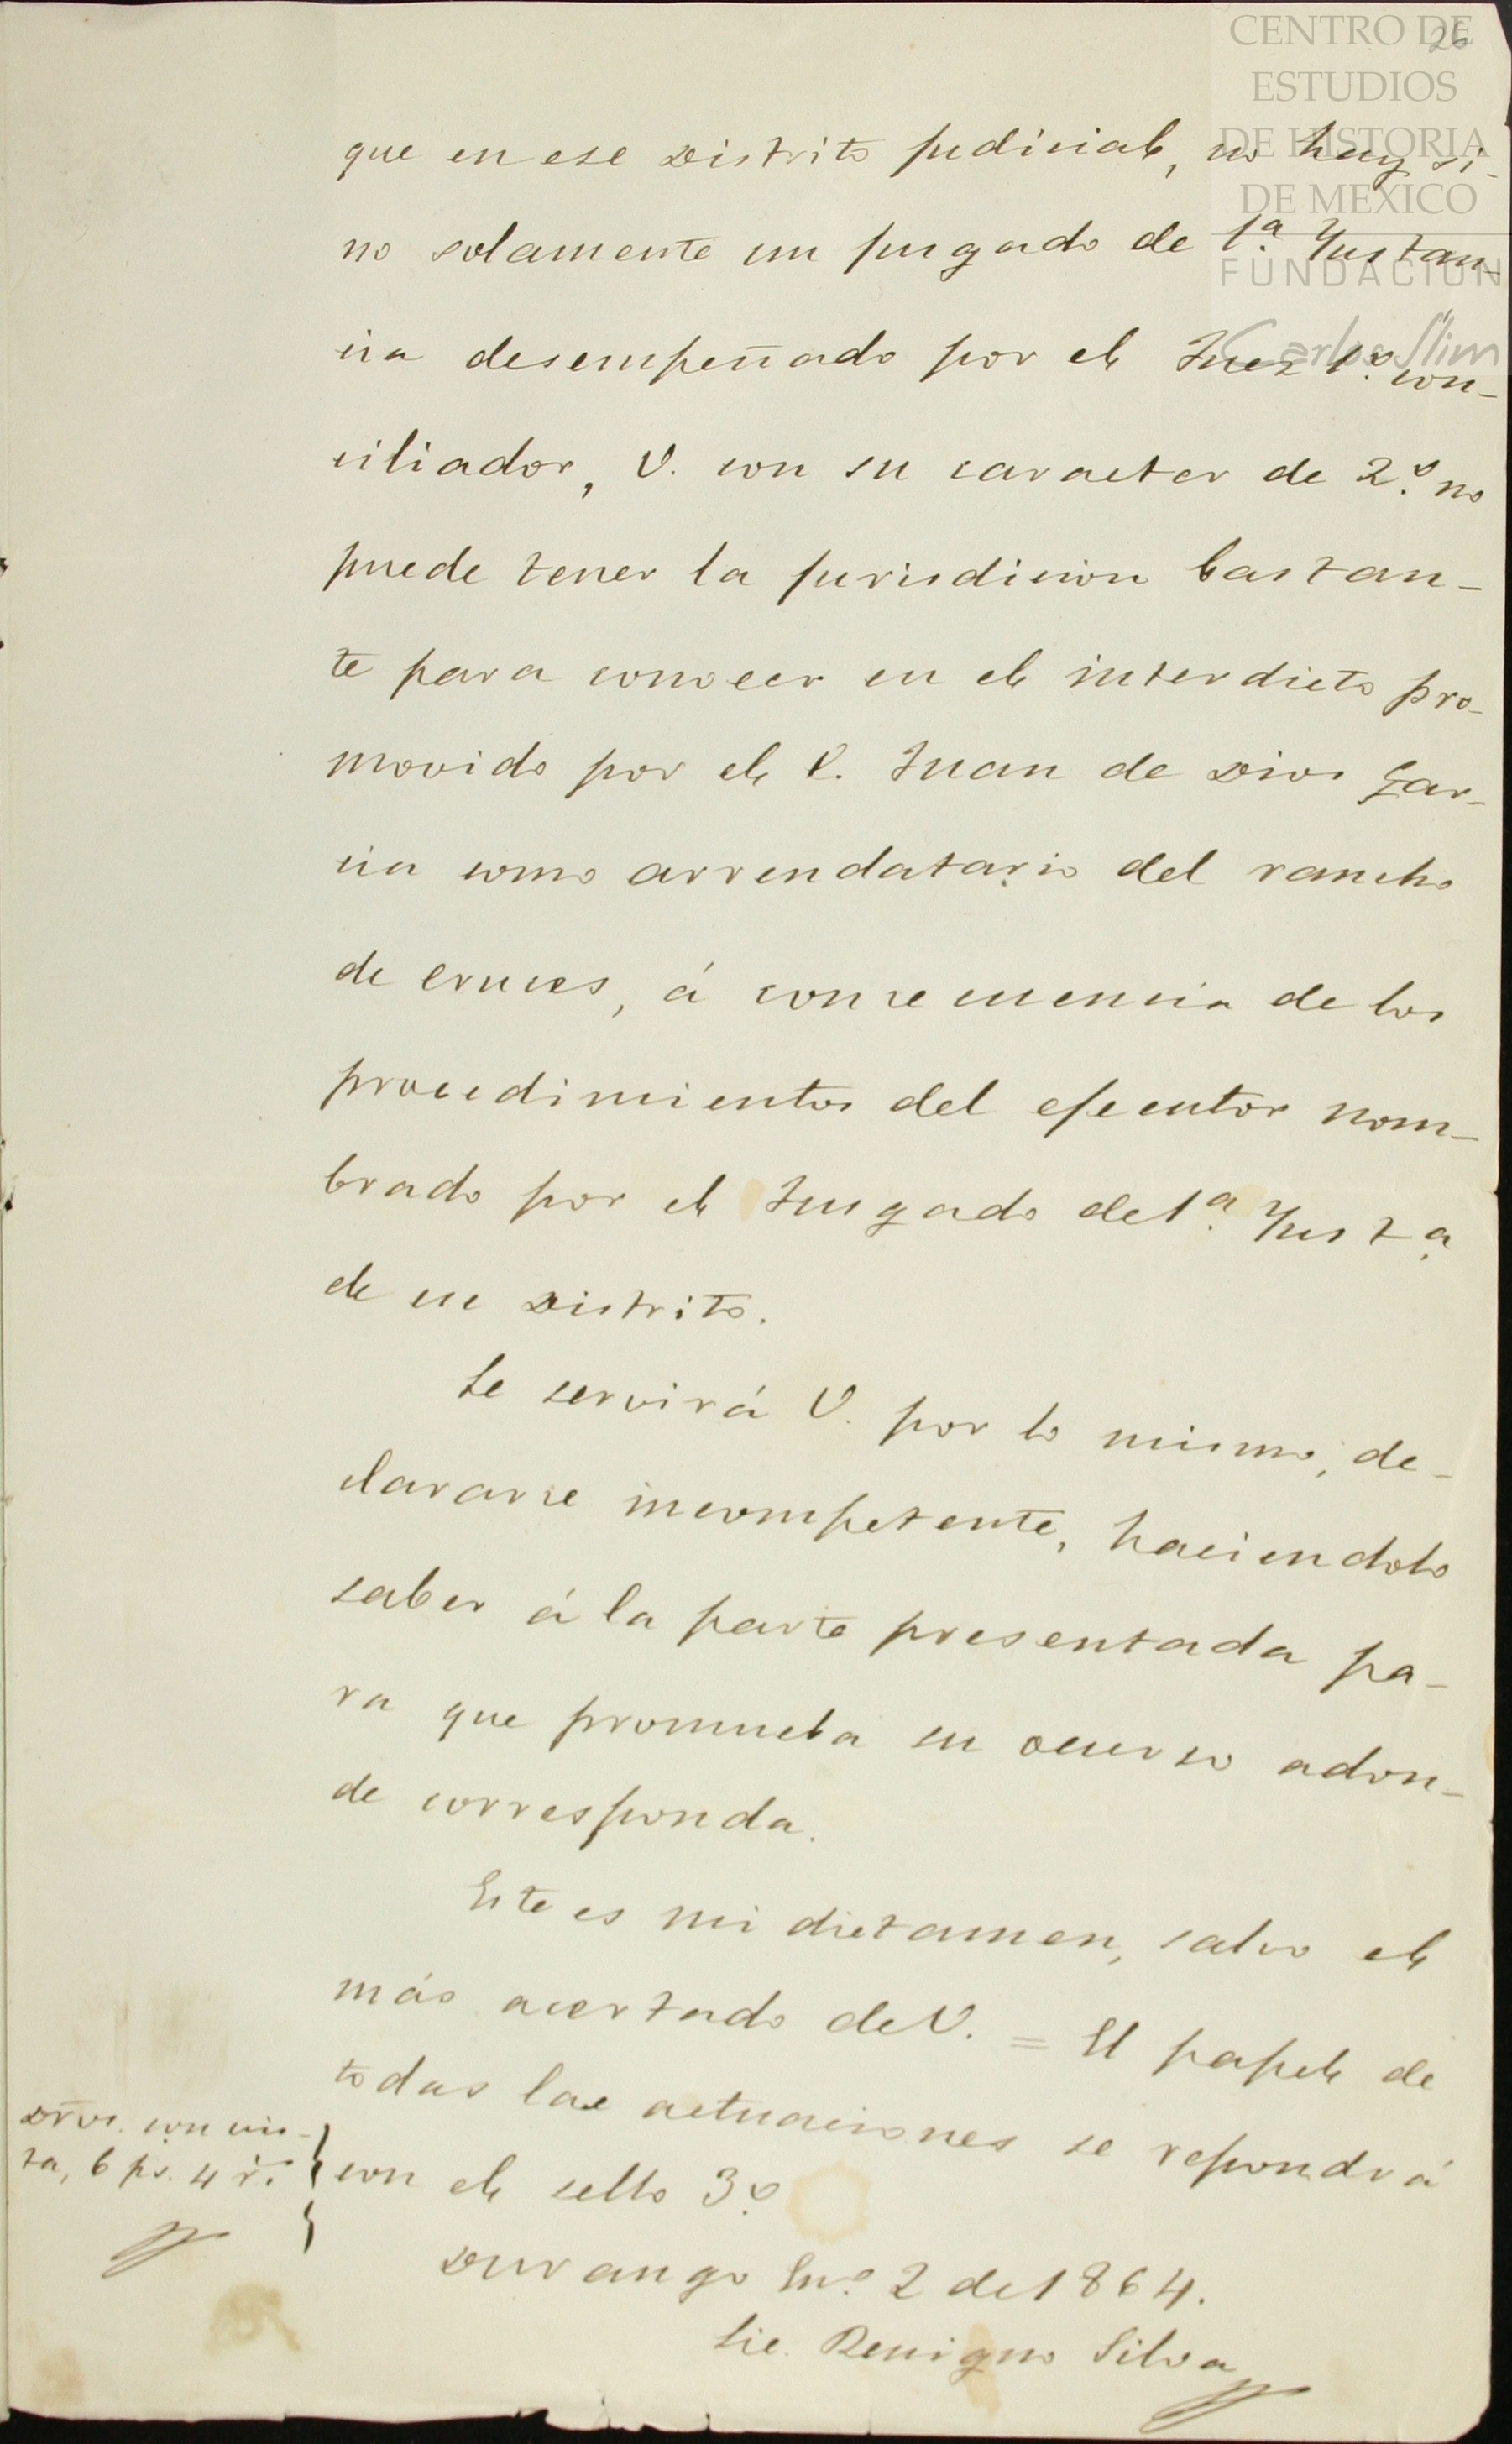 CENTRO DE
ESTUDIOS
DE HISTORIA
DE MEXICO
FUNDACION
Carlos Slim
26
que en ese Distrito judicial, no hay si-
no solamente un jusgado de 1ª. Ynstan-
cia desempeñado por el Juez 1º. con-
ciliador, V. con su caracter de 2º. no
puede tener la jurisdicion bastan-
te para conocer en el interdicto pro-
movido por el C. Juan de Dios Gar-
cia como arrendatario del rancho
de Cruces, á consecuencia de los
procedimientos del ejecutor nom-
brado por el Jusgado de 1ª. Ynstª.
de ese Distrito.
Se servirá V. por lo mismo, de-
clararse incompetente, haciendolo
saber á la parte presentada pa-
ra que promueba su ocurso adon-
de corresponda.
Este es mi dictamen, salvo el
más acertado de V. = El papel de
todas las actuaciones se repondrá
con el sello 3º.
Dr̃os. con vis-
ta, 6 ps. 4 r.
Durango Enº. 2 de 1864.
Lic. Benigno Silva